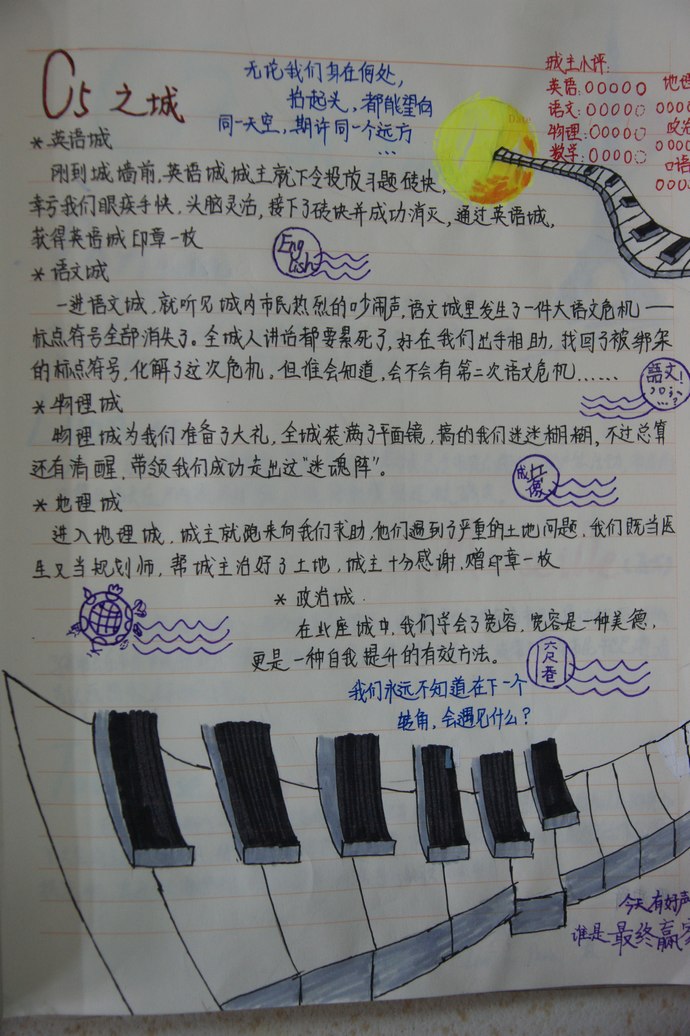 C5之城
无论我们身在何处,
抬起头,都能望向
同一天空,期许同一个远方
...
城主小评:
英语:OOOOO
语文:OOOOO
物理:OOOOO
数学:OOOO
地理
OOOO
政治
OOOO
口语
OOO
Date
*英语城
刚到城墙前,英语城城主就下令投放习题砖块,
幸亏我们眼疾手快,头脑灵治,接下了砖块并成功消灭,通过英语城,
获得英语城印章一枚
English
*语文城
一进语文城,就听见城内市民热烈的吵闹声,语文城里发生了一件大语文危机——
标点符号全部消失了。全城人讲话都要累死了,好在我们出手相助,找回了被绑架
的标点符号,化解了这次危机,但谁会知道,会不会有第二次语文危机......
語文!
*物理城
物理城为我们准备了大礼,全城装满了平面镜,搞的我们迷迷糊糊,不过总算
还有清醒,带领我们成功走出这“迷魂阵”。
成像
*地理城
进入地理城,城主就跑来向我们求助,他们遇到了严重的土地问题,我们既当医
生又当规划师,帮城主治好了土地,城主十分感谢,赠印章一枚
*政治城
在此座城中,我们学会了宽容,宽容是一种美德,
更是一种自我提升的有效方法。
六尺巷
我们永远不知道在下一个
转角,会遇见什么?
今天有好声
谁是最终赢家